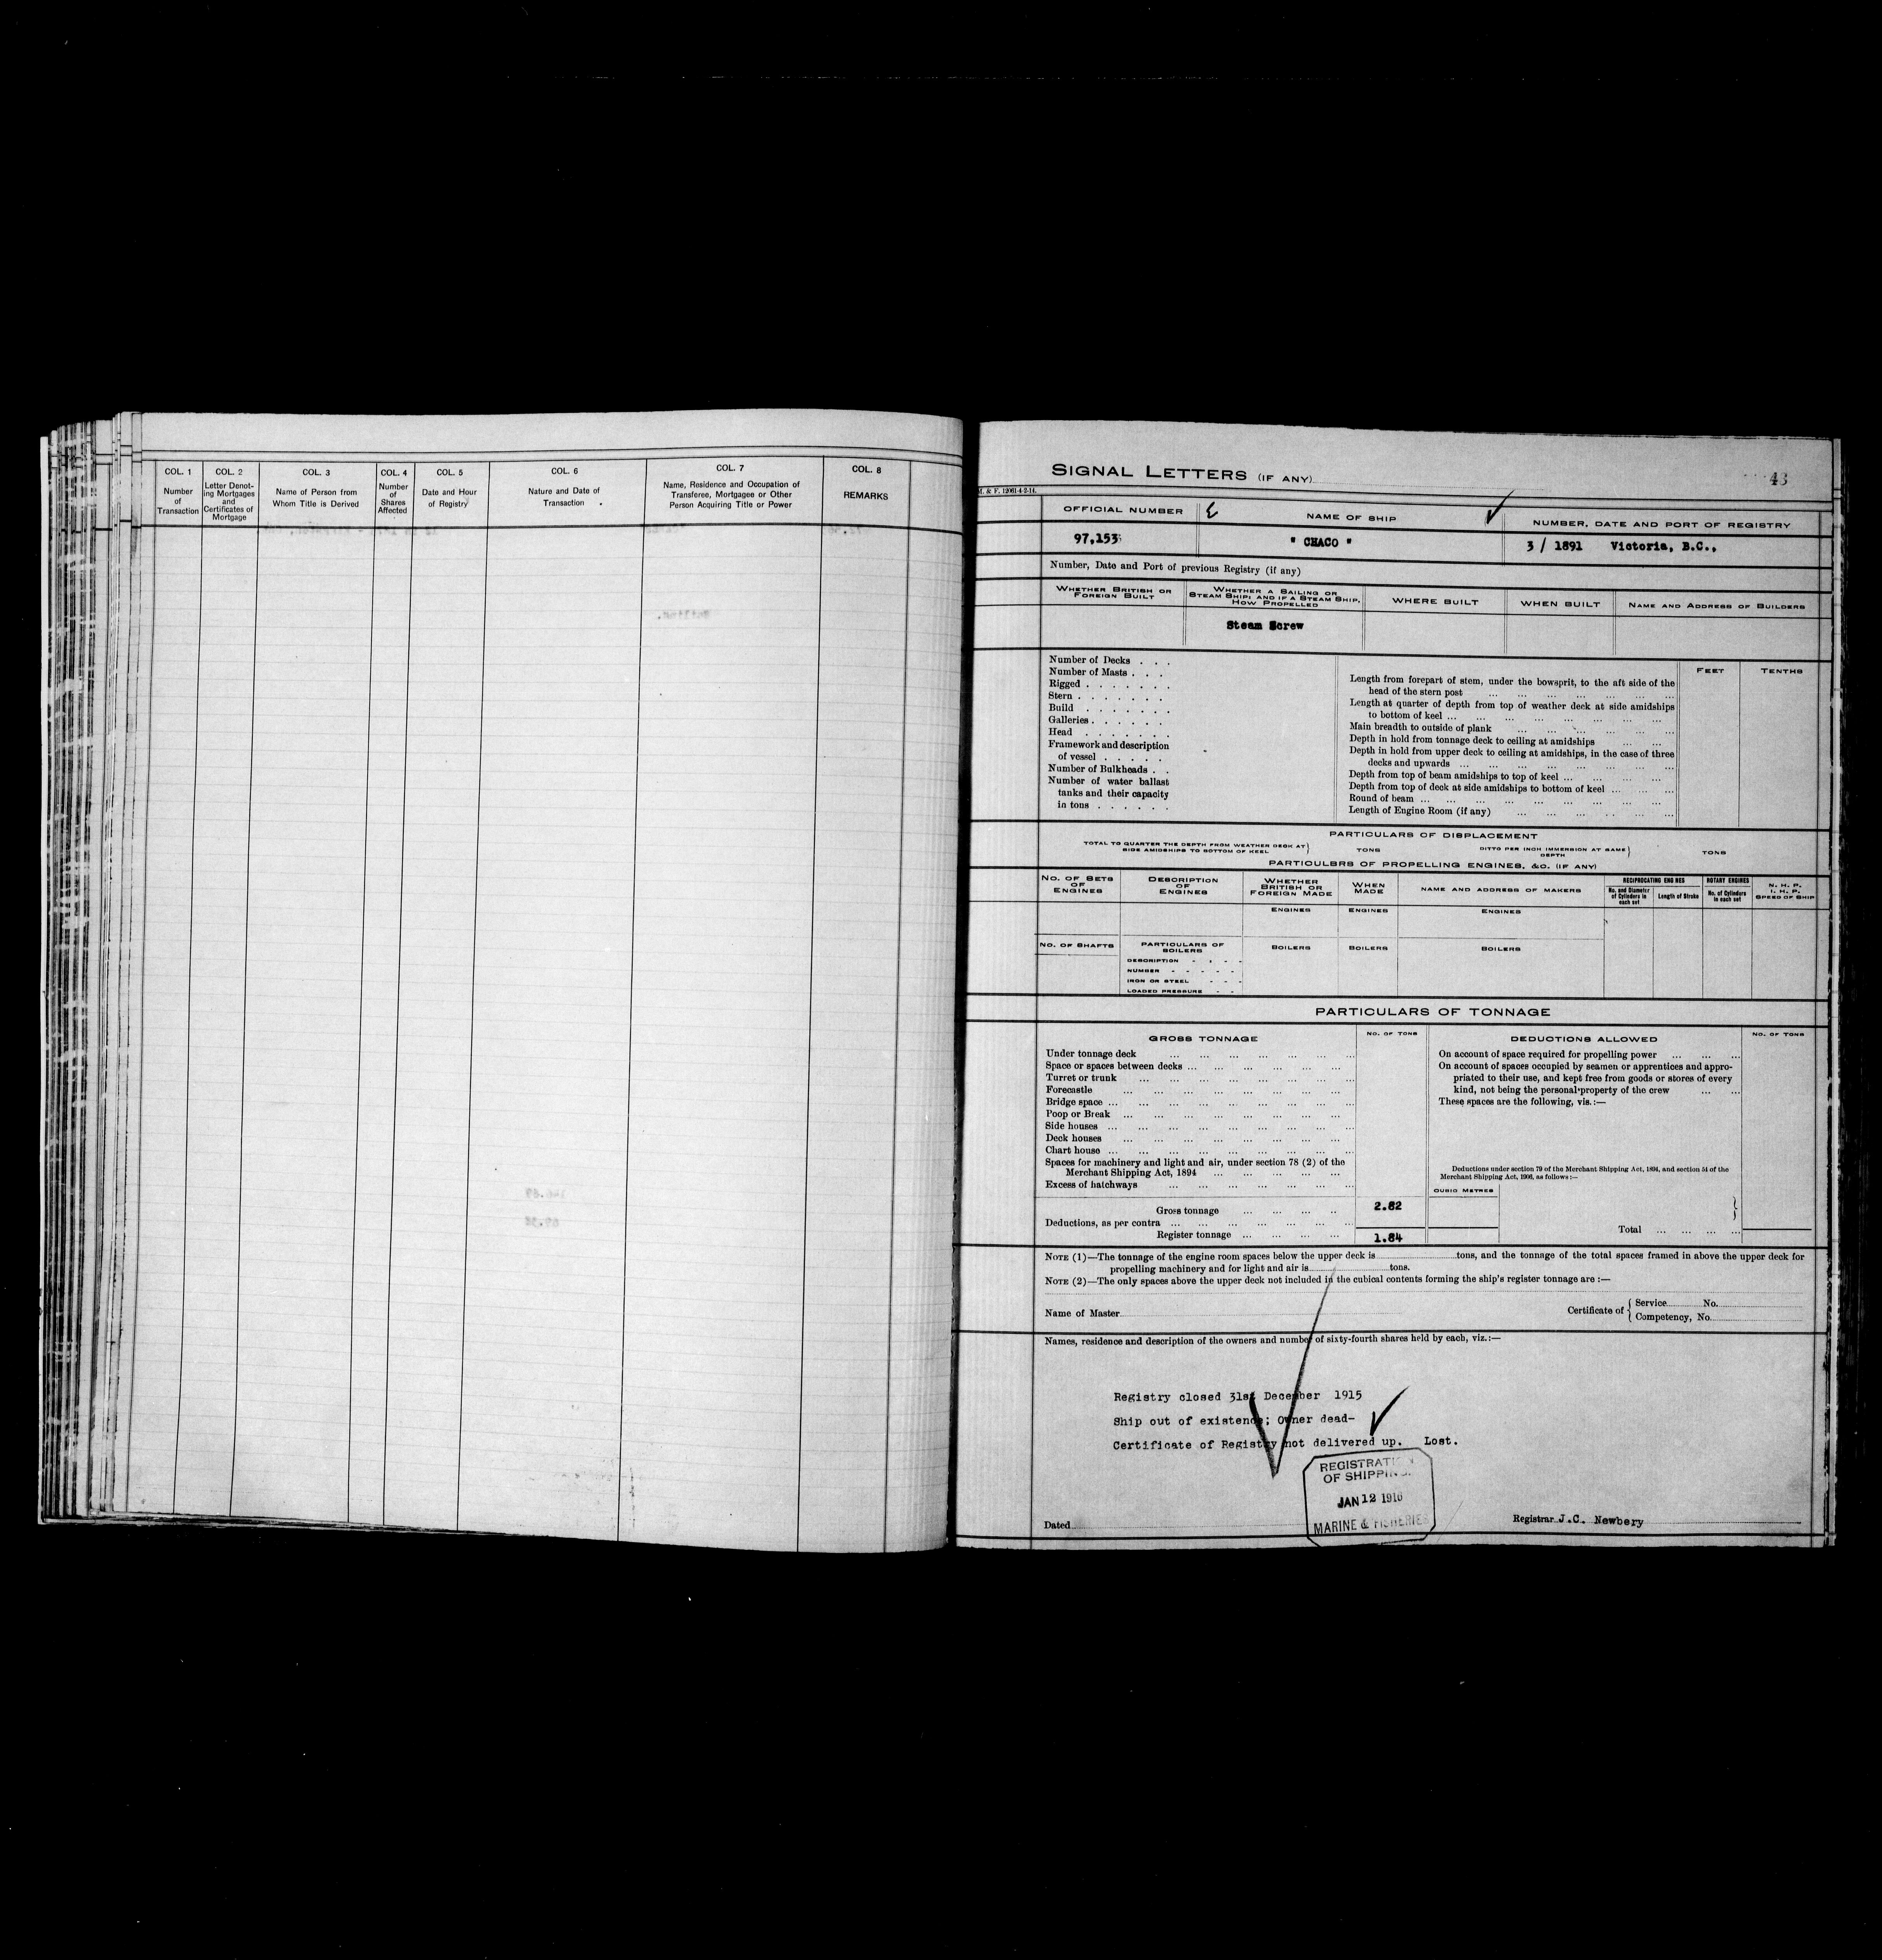 COL. 1
Number
of
Transaction
COL. 2
Letter Denot-
ing Mortgages
and
Certificates of
Mortgage
COL. 3
Name of Person from
Whom Title is Derived
COL. 4
Number
of
Shares
Affected
COL. 5
Date and Hour
of Registry
COL. 6
Nature and Date of
Transaction
COL. 7
Name, Residence and Occupation of
Transferee, Mortgagee or Other
Person Acquiring Title or Power
COL. 8
REMARKS
SIGNAL LETTERS (IF ANY)
43
M. & F. 12061-4-2-14.
OFFICIAL NUMBER
NAME OF SHIP
NUMBER, DATE AND PORT OF REGISTRY
97,153
" CHACO "
3 / 1891 Victoria, B.C.,
Number, Date and Port of previous Registry (if any)
WHETHER BRITISH OR
FOREIGN BUILT
WHETHER A SAILING OR
STEAM SHIP; AND IF A STEAM SHIP,
HOW PROPELLED
WHERE BUILT
WHEN BUILT
NAME AND ADDRESS OF BUILDERS
Steam Screw
Number of Decks . . .
Number of Masts . . .
Rigged . . . . . . .
Stern . . . . . . .
Build . . . . . . .
Galleries . . . . . .
Head . . . . . . .
Framework and description
of vessel . . . . .
Number of Bulkheads . .
Number of water ballast
tanks and their capacity
in tons . . . . . .
FEET
TENTHS
Length from forepart of stem, under the bowsprit, to the aft side of the
head of the stern post
Length at quarter of depth from top of weather deck at side amidships
to bottom of keel ...
Main breadth to outside of plank
Depth in hold from tonnage deck to ceiling at amidships
Depth in hold from upper deck to ceiling at amidships, in the case of three
decks and upwards ...
Depth from top of beam amidships to top of keel ...
Depth from top of deck at side amidships to bottom of keel ...
Round of beam ...
Length of Engine Room (if any)
PARTICULARS OF DISPLACEMENT
TOTAL TO QUARTER THE DEPTH FROM WEATHER DECK AT
SIDE AMIDSHIPS TO BOTTOM OF KEEL
TONS
DITTO PER INCH IMMERSION AT SAME
DEPTH
TONS
PARTICULBRS OF PROPELLING ENGINES, &C. (IF ANY)
NO. OF SETS
OF
ENGINES
DESCRIPTION
OF
ENGINES
WHETHER
BRITISH OR
FOREIGN MADE
WHEN
MADE
NAME AND ADDRESS OF MAKERS
RECIPROCATING ENGINES
No. and Diameter
of Cylinders in
each set
Length of Stroke
ROTARY ENGINES
No. of Cylinders
in each set
N. H. P.
I. H. P.
SPEED OF SHIP
ENGINES
ENGINES
ENGINES
NO. OF SHAFTS
PARTICULARS OF
BOILERS
BOILERS
BOILERS
BOILERS
DESCRIPTION - - - -
NUMBER - - - - -
IRON OR STEEL - - -
LOADED PRESSURE - -
PARTICULARS OF TONNAGE
GROSS TONNAGE
NO. OF TONS
DEDUCTIONS ALLOWED
NO. OF TONS
Under tonnage deck
Space or spaces between decks ...
Turret or trunk
Forecastle
Bridge space ...
Poop or Break
Side houses
Deck houses
Chart house ...
Spaces for machinery and light and air, under section 78 (2) of the
Merchant Shipping Act, 1894
Excess of hatchways
Gross tonnage 2.82
Deductions, as per contra
Register tonnage 1.84
On account of space required for propelling power
On account of spaces occupied by seamen or apprentices and appro-
priated to their use, and kept free from goods or stores of every
kind, not being the personal property of the crew
These spaces are the following, vis.:—
Deductions under section 79 of the Merchant Shipping Act, 1894, and section 54 of the
Merchant Shipping Act, 1906, as follows:—
CUBIC METRES
Total
NOTE (1)—The tonnage of the engine room spaces below the upper deck is tons, and the tonnage of the total spaces framed in above the upper deck for
propelling machinery and for light and air is tons.
NOTE (2)—The only spaces above the upper deck not included in the cubical contents forming the ship's register tonnage are :—
Name of Master
Certificate of
Service No.
Competency, No.
Names, residence and description of the owners and number of sixty-fourth shares held by each, viz.:—
Registry closed 31st December 1915
Ship out of existence; Owner dead-
Certificate of Registry not delivered up. Lost.
REGISTRATION
OF SHIPPING.
JAN 12 1916
MARINE & FISHERIES
Dated
Registrar J.C. Newbery